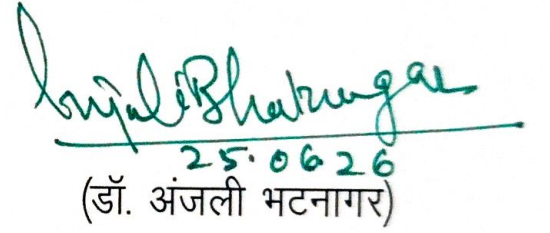 Anjali Bhatnagar
25.06.26
(डॉ. अंजली भटनागर)